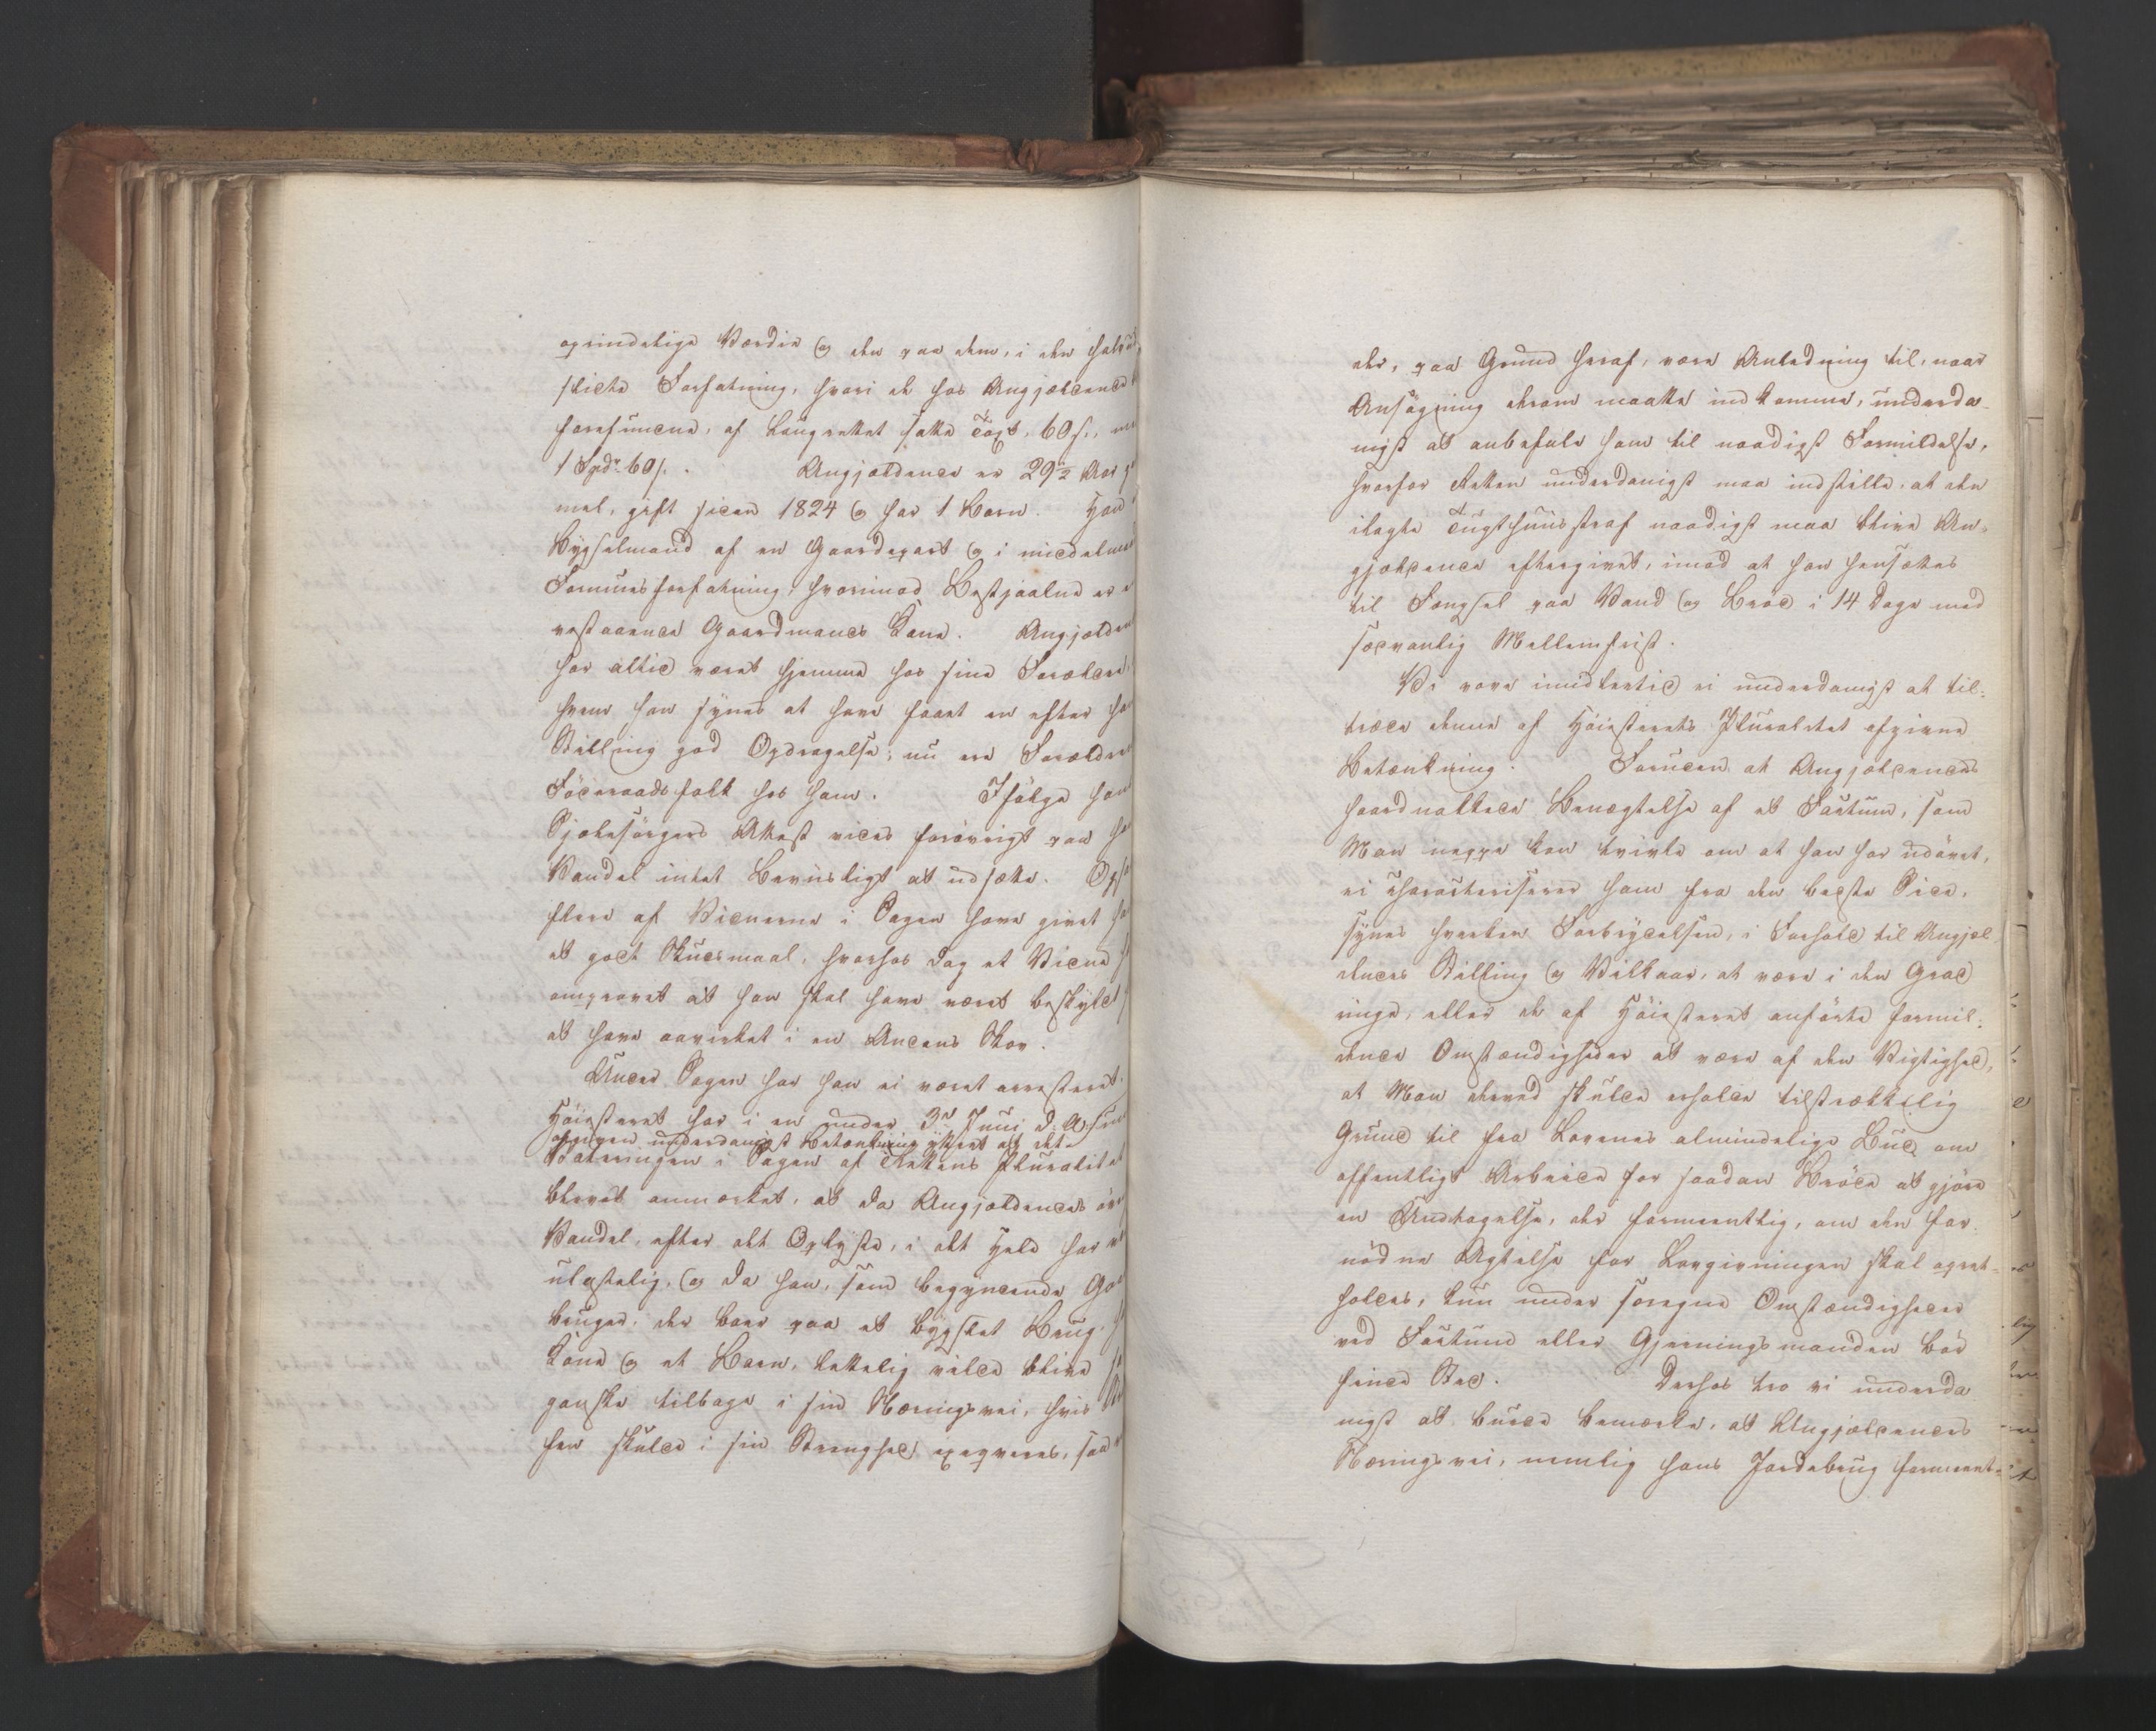 oprindelige Værdie og den paa dem, i den
slidte Forfatning, hvori de hos Angjældende
forefunden, af Laugrettet satte Taxt, 60 s.,
1 Spd. 60 s. Angjældende er 29½ Aar
mel, gift siden 1824 og har 1 Barn. Han
Bygselmand af en Gaardepart og i middelmaa
Formuesforfatning hvorimod Bestjaalne er
velstaaende Gaardmands Kone. Angjælden
har altid været hjemme hos sine Forældre,
hvem han synes at have faaet en efter
Stilling god Opdragelse; nu ere Forældre
Föderaadsfolk hos ham. Ifölge
Sjælesörgers Attest vides forövrigt paa
Vandel intet Beviisligt at udsætte.
flere af Vidnerne i Sagen have givet
et godt Skudsmaal, hvorhos dog et Vidne
omprovet at han skal have været beskyldt
at have aavirket i en Andens Skov.
Under Sagen har han ei været arresteret.
Höiesteret har i en under 3die Juni d: A:
afgiven underdanigst Betænkning yttret at det
Voteringen i Sagen af Rettens Pluralitet
blevet anmærket, at da Angjældendes
Vandel, efter det Oplyste, i det Hele har
ulastelig, og da han, som begyndende
bruger, der boer paa et bygslet Brug,
Kone og et Barn, lettelig vilde blive
ganske tilbage i sin Næringsvei, hvis
fen skulde i sin Strenghed exeqveres, saa
der, paa Grund heraf, være Anledning til, naar
Ansögning derom maatte indkomme, underda-
nigst at anbefale ham til naadigst Formildelse,
hvorfor Retten underdanigst maa indstille, at den
ilagte Tugthuusstraf naadigst maa blive An-
gjældende eftergivet, imod at han hensættes
til Fængsel paa Vand og Bröd i 14 Dage med
sædvanlig Mellemfrist.
Vi vove imidlertid ei underdanigst at til-
træde denne af Höiesterets Pluralitet afgivne
Betænkning. Foruden at Angjældendes
haardnakkede Benægtelse af et Factum, som
Man neppe kan tvivle om at han har udövet,
ei characteriserer ham fra den bedste Side,
synes hverken Forbrydelsen, i Forhold til Angjæl-
dendes Stilling og Vilkaar, at være i den Grad
ringe, eller de af Höiesteret anförte formil-
dende Omstændigheder at være af den Vigtighed,
at Man derved skulde erholde tilstrækkelig
Grund til fra Lovenes almindelige Bud om
offentligt Arbeide for saadan Bröde at gjöre
en Undtagelse, der formeentlig, om den for-
nödne Agtelse for Lovgivningen skal opret-
holdes, kun under særegne Omstændigheder
ved Factum eller Gjerningsmanden bör
finde Sted. Derhos tro vi underda
nigst at burde bemærke, at Angjældendes
Næringsvei, nemlig hans Jordebrug formeent-